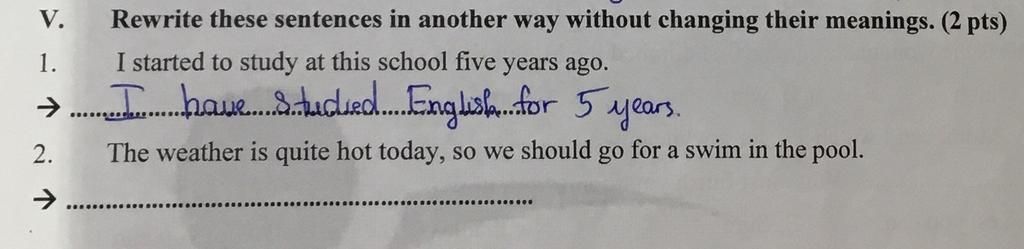 V. Rewrite these sentences in another way without changing their meanings. (2 pts)
1. I started to study at this school five years ago.
→ ........I....have....Studied....English...for 5 years.
2. The weather is quite hot today, so we should go for a swim in the pool.
→ ......................................................................